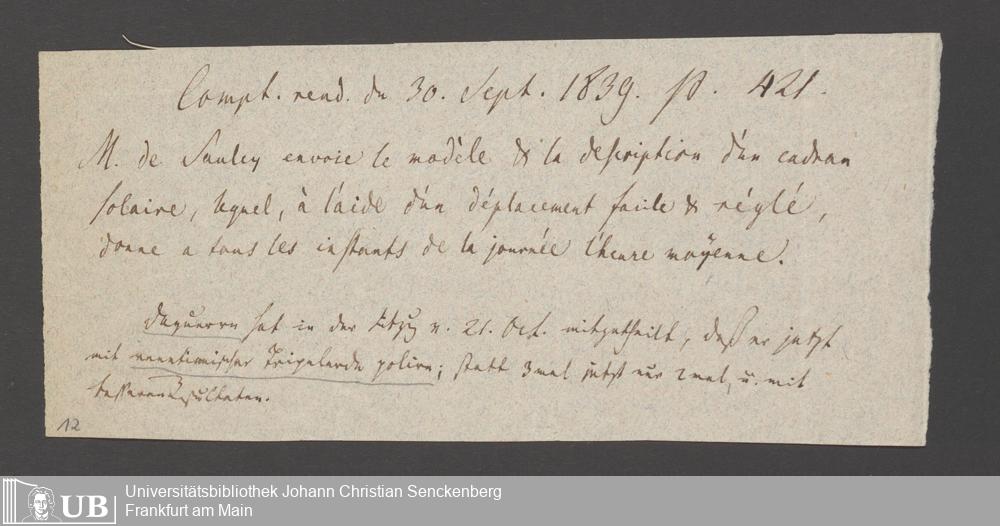 Compt. rend. du 30. Sept. 1839. p. 421.
M. de Saulcy envoie le modèle & la description d'un cadran
solaire, lequel, à l'aide d'un déplacement facile & réglé,
donne a tous les instants de la journée l'heure moÿenne.
Daguerre hat in der Sitzg v. 21. Oct. mitgetheilt, daß er jetzt
mit venetianischer Tripelerde polire; statt 3 mal jetzt nur 2 mal, u. mit
besseren Resultaten.
12
UB
Universitätsbibliothek Johann Christian Senckenberg
Frankfurt am Main